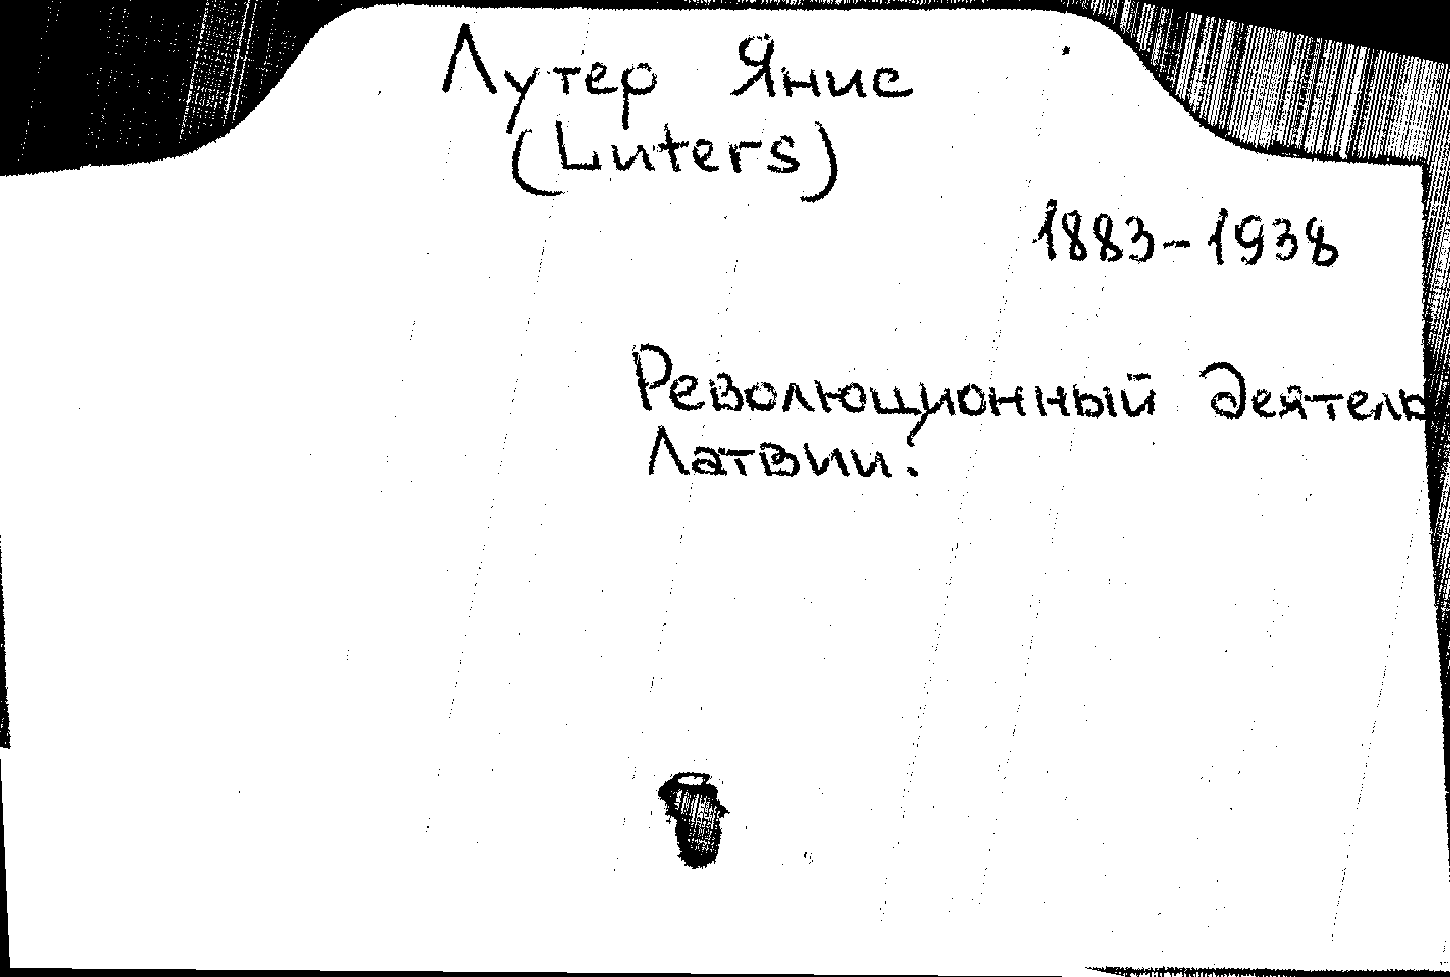 Лутер Янис
(Luters)
1883-1938
Революционный деятель
Латвии.